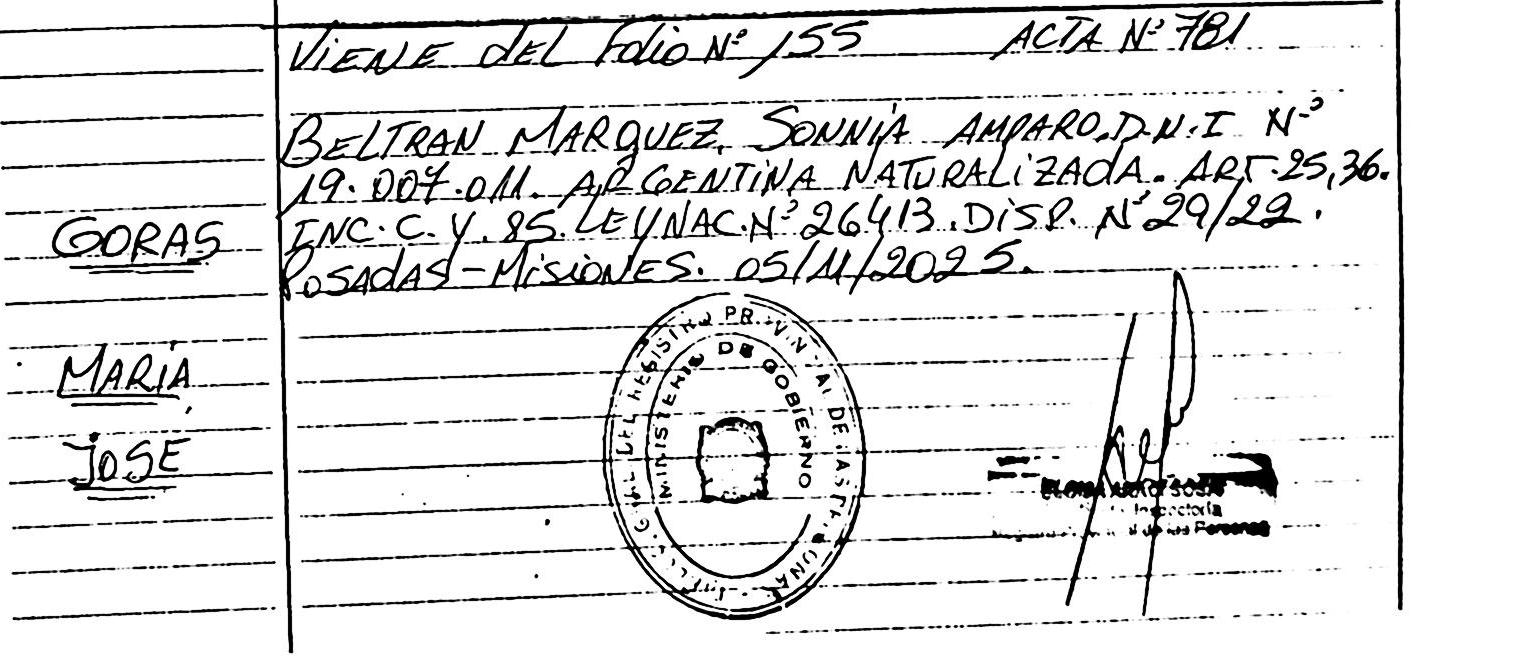 VIENE dEL Folio Nº 155 ACTA Nº 781
BELTRAN MARQUEZ, SONNIA AMPARO.D.N.I Nº
19.007.011. ARGENTINA NATURALIZADA. ART.25,36.
INC.C.Y.85.LEY NAC.Nº 26413.DISP. Nº 29/22.
POSADAS-MISIONES. 05/11/2025.
GORAS
MARIA
JOSE
GRAL DEL REGISTRO PROVINCIAL DE LAS PERSONAS
MINISTERIO DE GOBIERNO
Inspectoría
de las Personas